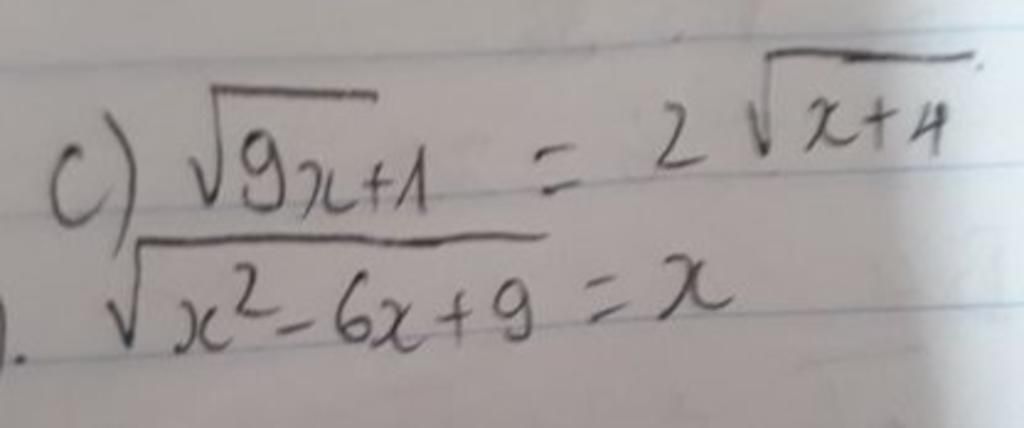 c) √9x+1 = 2√x+4
. √x²-6x+9 = x